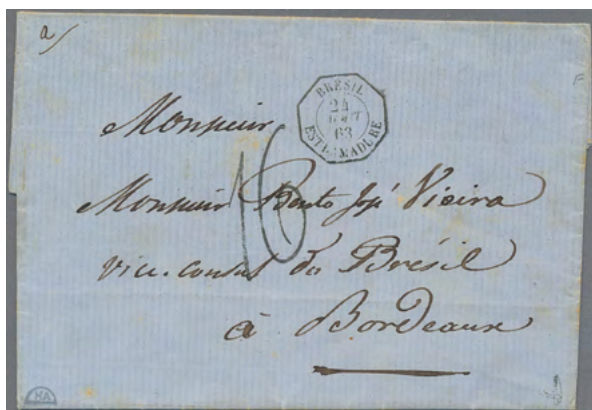 a/
BRÉSIL
24
AOUT
63
ESTREMADURE
Monsieur
16
Monsieur Bento José Vieira
vice.consul du Brésil
à Bordeaux